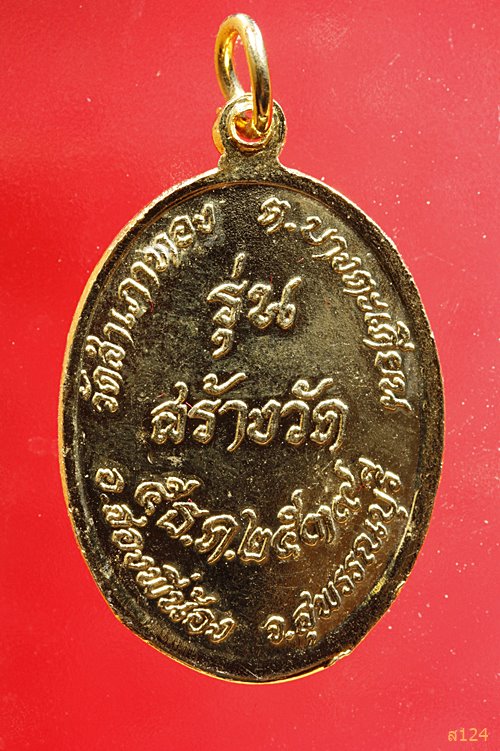 วัดสำเภาทอง ต.บางตะเคียน
รุ่น
สร้างวัด
๕ ธ.ค.๒๕๓๙
อ.สองพี่น้อง จ.สุพรรณบุรี
ส124